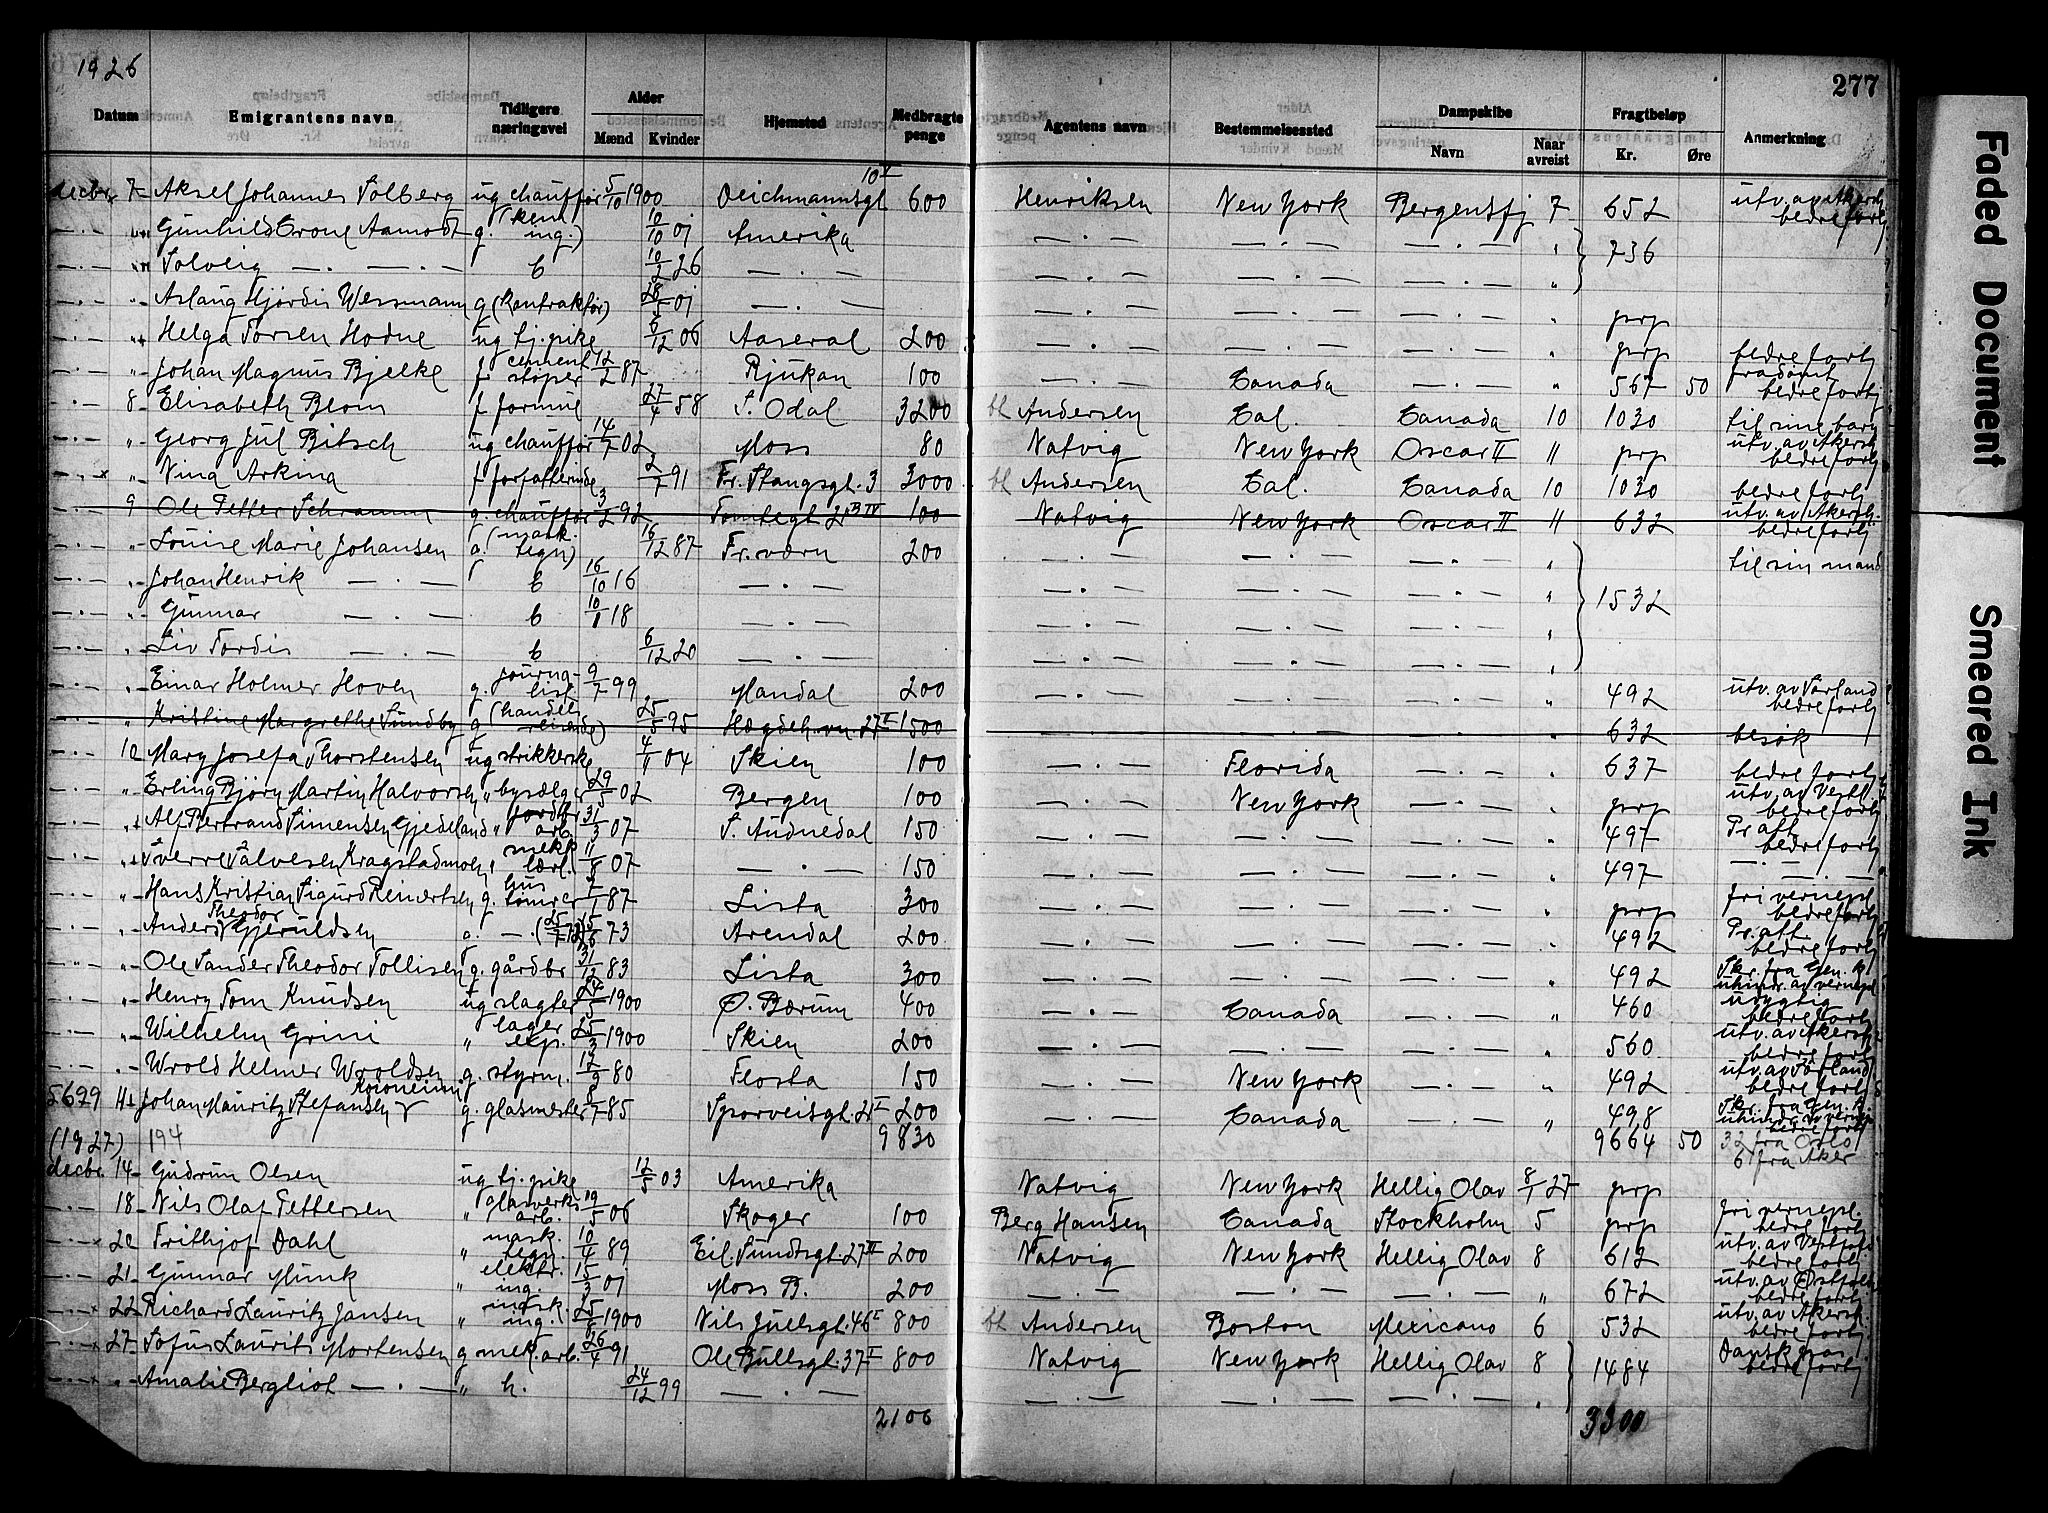 1926
277
Datum Emigrantens navn Tidligere næringsvei Alder Mænd Kvinder Hjemsted Medbragte penge Agentens navn Bestemmelsessted Dampskibe Navn Naar avreist Fragtbeløp Kr. Øre Anmerkning
decbr. 7 Aksel Johannes Solberg ug chauffør 5/10 1900 Deichmannsgt 10 V 600 Henriksen New York Bergensfj 7 652 utv. av Akersh bedre forhj
— · — " Gunhild Aamodt g. (kem. ing.) 10/10 01 Amerika — · — — · — — · — " 736
— · — " Solveig — · — b 10/2 26 — · — — · — — · — — · — "
— · — " Aslaug Hjørdis Wessmann g (Kontraktør) 01 — · — — · — — · — — · — " prp
— · — " Helga Torsen Hodne ug tj. pike 6/12 06 Aaseral 200 — · — — · — — · — " prp bedre forhj
— · — " Johan Magnus Bjelke f cement støper 12/2 87 Rjukan 100 — · — Canada — · — " 567 50 bedre forhj
— · — 8 Elisabeth Blom f formue 27/4 58 S. Odal 3200 bl Andersen Cal. Canada 10 1030 til sine barn
— · — " Georg Jul Bitsch ug chauffør 14/7 02 Moss 80 Natvig New York Oscar II 11 prp utv. av Akersh bedre forhj
— · — x " Nina Arkina f forfatterinde 2/7 91 Fr. Stangsgt. 3 3000 bl Andersen Cal. Canada 10 1030 bedre forhj
— · — 9 Ole Petter Schramm g. chauffør 3/2 92 Tomtegt 21 B IV 100 Natvig New York Oscar II 11 632 utv. av Akersh. bedre forhj
— · — " Louise Marie Johansen g. (mask. tegn) 16/12 87 Fr. værn 200 — · — — · — — · — " til sin mand
— · — " Johan Henrik — · — b 16/10 16 — · — — · — — · — — · — " 1532
— · — " Gunnar — · — b 10/1 18 — · — — · — — · — — · — "
— · — " Liv Tordis — · — b 6/12 20 — · — — · — — · — — · — "
— · — " Einar Holmer Hoven g. journalist 9/7 99 Mandal 200 — · — — · — — · — " 492 utv. av Sørland bedre forhj
— · — " Kristine Margrethe Sundby g (handels reisende) 25/5 95 Hægdeh. vn 27 II 1500 — · — — · — — · — " 632 besøk
— · — 10 Mary Josefa Thorstensen ug strikkerske 4/11 04 Skien 100 — · — Florida — · — " 637 bedre forhj
— · — " Erling Bjørn Martin Halvorsen " bysælger 29/5 02 Bergen 100 — · — New York — · — " prp utv. av Vestl. bedre forhj
— · — " Alf Bertrand Simensen Gjedeland " jordbr arb. 31/3 07 S. Audnedal 150 — · — — · — — · — " 497 Pr. att. bedre forhj
— · — " Sverre Salvesen Kragstadmoen " mek. lærl. 11/8 07 — · — 150 — · — — · — — · — " 497 — · —
— · — " Hans Kristian Sigurd Reinertsen g. hus tømrer 7/1 87 Lista 300 — · — — · — — · — " prp fri vernepl bedre forhj
— · — " Anders Theodor Gjeruldsen g. — · — 15/6 73 Arendal 200 — · — — · — — · — " 492 Pr. att. bedre forhj
— · — " Ole Sander Theodor Tollisen g. gårdbr 31/12 83 Lista 300 — · — — · — — · — " 492 Skr. fra Gen. K uhindr. av vernepl
— · — " Henry Tom Knudsen ug slagter 24/5 1900 Ø. Bærum 400 — · — Canada — · — " 460 udygtig bedre forhj
— · — " Wilhelm Grini " lager exp. 25/3 1900 Skien 200 — · — — · — — · — " 560 utv. av Akersh bedre forhj
— · — " Wrold Helmer Wroldsen g. styrm. 12/9 80 Flosta 150 — · — New York — · — " 492 utv. av Sørland bedre forhj
5679 11 Johan Mauritz Stefansen g. glasmester 8/7 85 Sporveisgt. 21 I 200 — · — Canada — · — " 498 Skr. fra Gen. K uhindr. av vernepl bedre forhj
(1927) 194 9830 9664 50 32 fra Oslo
6 fra Aker
decbr. 14 Gudrun Olsen ug tj. pike 12/5 03 Amerika Natvig New York Hellig Olav 8/1 27 prp
— · — 18 Nils Olaf Pettersen " glasverks arb. 19/5 06 Skoger 100 Berg Hansen Canada Stockholm 5 prp fri vernepl. bedre forhj
— · — x 20 Frithjof Dahl " mask. tegn. 10/4 89 Eil. Sundtsgt. 27 III 200 Natvig New York Hellig Olav 8 612 utv. av Vestfold bedre forhj
— · — 21 Gunnar Munk " elektr. ing. 15/3 01 Moss B. 200 — · — — · — — · — " 672 utv. av Østfold bedre forhj
— · — x 22 Richard Lauritz Jansen " mask. ing. 25/5 1900 Nils Juelsgt. 46 I 800 bl Andersen Boston Mexicano 6 532 utv. av Akersh. bedre forhj
— · — x 27 Sofus Laurits Mortensen g mek. arb. 26/4 91 Ole Bullsgt. 37 I 800 Natvig New York Hellig Olav 8 1484 Dansk pas bedre forhj
— · — " Amalie Bergliot — · — " h. 24/12 99 — · — — · — — · — — · — "
2100 3300
Faded Document
Smeared Ink